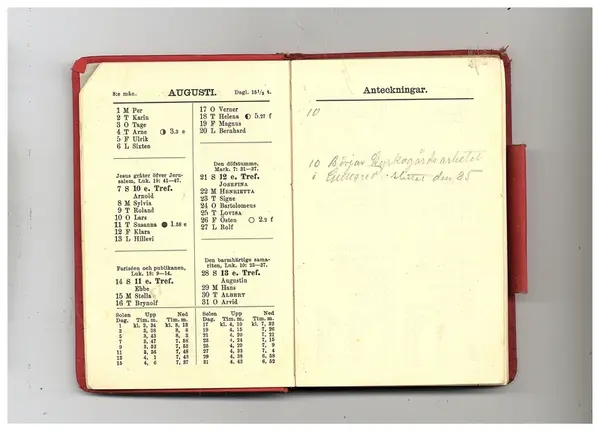 8:e mån. AUGUSTI. Dagl. 15½ t.
1 M Per
2 T Karin
3 O Tage
4 T Arne 3.3 e
5 F Ulrik
6 L Sixten
Jesus gråter öfver Jeru-
salem, Luk. 19: 41—47.
7 S 10 e. Tref.
Arnold
8 M Sylvia
9 T Roland
10 O Lars
11 T Susanna 1.38 e
12 F Klara
13 L Hillevi
Fariséen och publikanen,
Luk. 18: 9—14.
14 S 11 e. Tref.
Ebbe
15 M Stella
16 T Brynolf
17 O Verner
18 T Helena 5.27 f
19 F Magnus
20 L Bernhard
Den döfstumme,
Mark. 7: 31—37.
21 S 12 e. Tref.
Josefina
22 M Henrietta
23 T Signe
24 O Bartolomeus
25 T Lovisa
26 F Östen 2.2 f
27 L Rolf
Den barmhärtige sama-
riten, Luk. 10: 23—37.
28 S 13 e. Tref.
Augustin
29 M Hans
30 T Albert
31 O Arvid
Solen Upp Ned
Dag. Tim. m. Tim. m.
1 kl. 3, 34 kl. 8, 13
3 3, 38 8, 8
5 3, 43 8, 3
7 3, 47 7, 58
9 3, 52 7, 53
11 3, 56 7, 48
13 4, 1 7, 43
15 4, 6 7, 37
Solen Upp Ned
Dag. Tim. m. Tim. m.
17 kl. 4, 10 kl. 7, 32
19 4, 15 7, 26
21 4, 20 7, 21
23 4, 24 7, 15
25 4, 29 7, 9
27 4, 33 7, 4
29 4, 38 6, 58
31 4, 42 6, 52
Anteckningar.
10
10 Börjar Kyrkogårdsarbetet
i slutet den 25